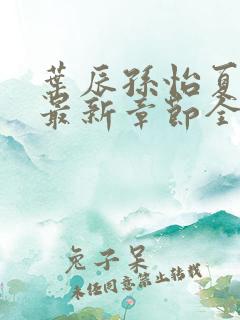 叶辰孙怡夏
最新章节全
兔子呆
未经同意禁止转载